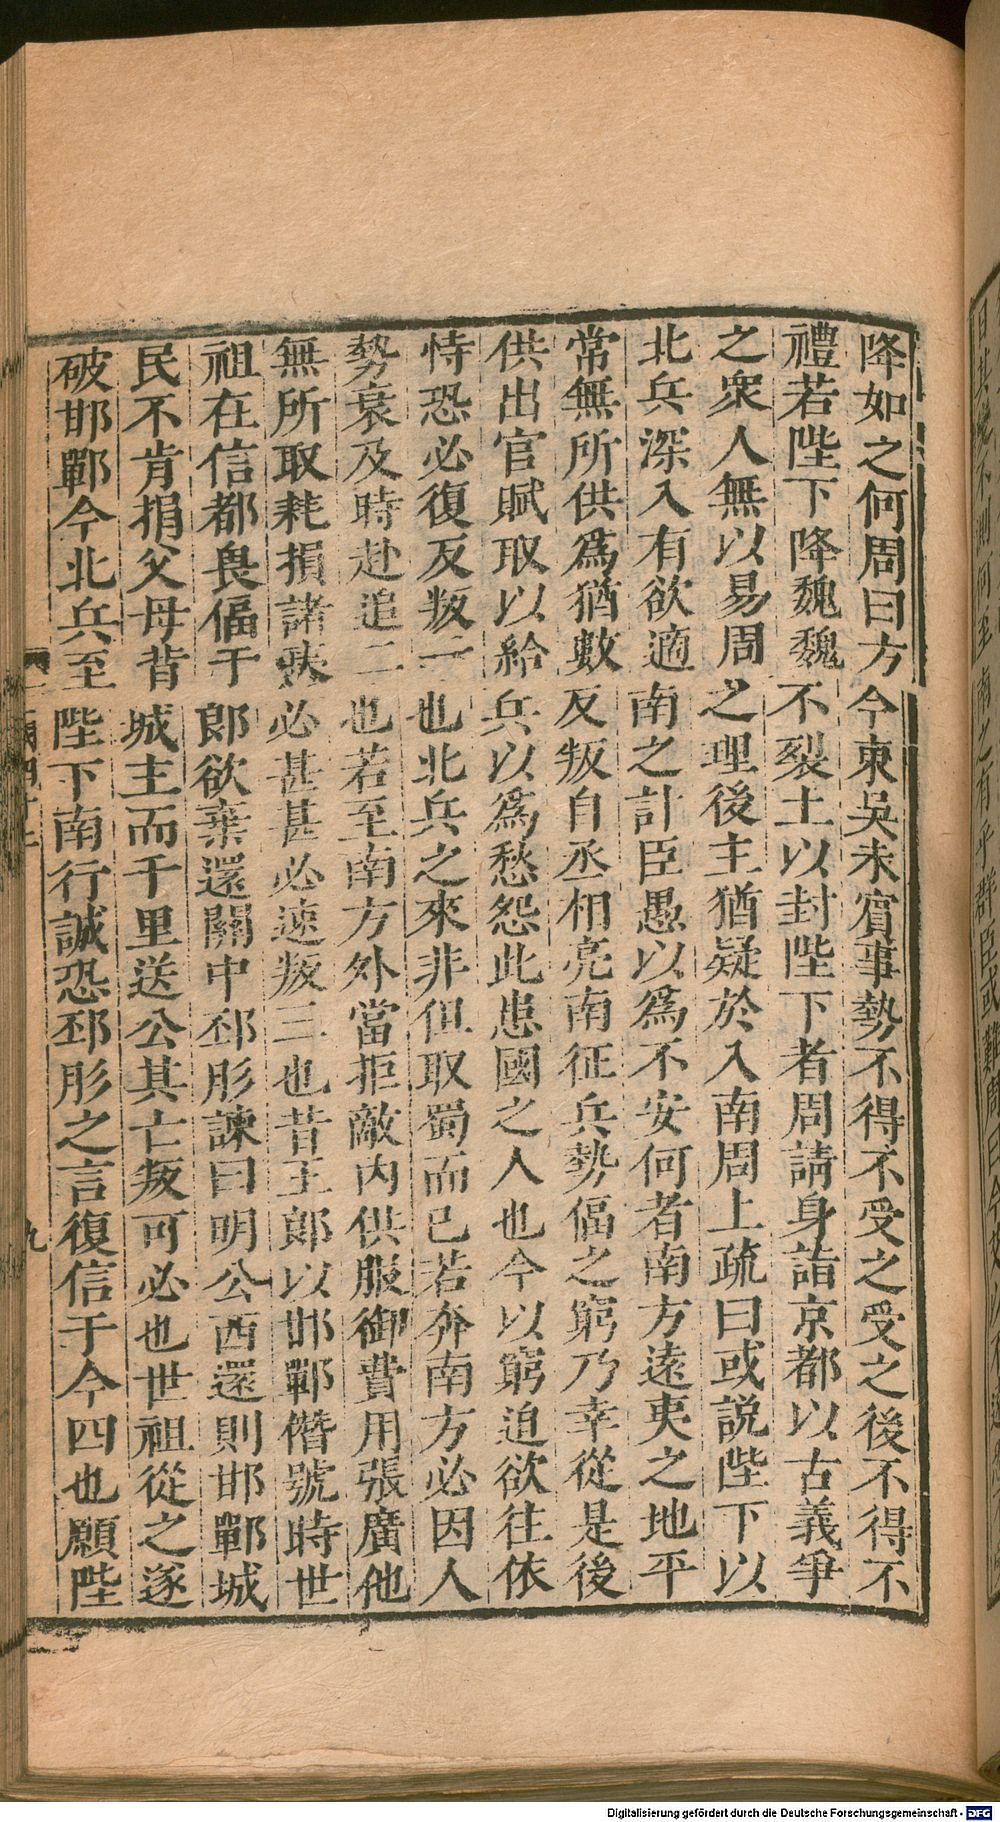 降如之何周曰方今東吳未賓事勢不得不受之受之後不得不
禮若陛下降魏魏不裂土以封陛下者周請身詣京都以古義爭
之衆人無以易周之理後主猶疑於入南周上疏曰或説陛下以
北兵深入有欲適南之計臣愚以爲不安何者南方遠夷之地平
常無所供爲猶數反叛自丞相亮南征兵勢偪之窮乃幸從是後
供出官賦取以給兵以爲愁怨此患國之人也今以窮迫欲往依
恃恐必復反叛一也北兵之來非但取蜀而已若奔南方必因人
勢衰及時赴追二也若至南方外當拒敵内供服御費用張廣他
無所取耗損諸夷必甚甚必速叛三也昔王郎以邯鄲僭號時世
祖在信都畏偪于郎欲棄還關中邳肜諫曰明公西還則邯鄲城
民不肯捐父母背城主而千里送公其亡叛可必也世祖從之遂
破邯鄲今北兵至陛下南行誠恐邳肜之言復信于今四也願陛
九
Digitalisierung gefördert durch die Deutsche Forschungsgemeinschaft - DFG